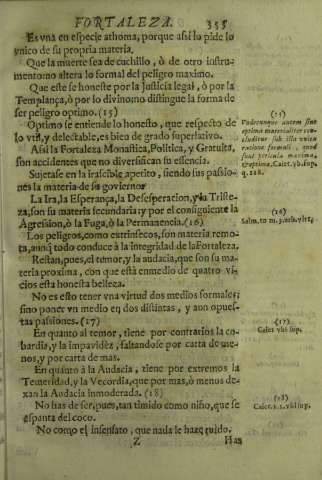 FORTALEZA. 355
Es vna en especie athoma, porque asi lo pide lo
vnico de su propria materia.
Que la muerte sea de cuchillo, ò de otro instru-
mento no altera lo formal del peligro maximo.
Que este se honeste por la Iusticia legal, ò por la
Templança, ò por lo divino no distingue la forma de
ser peligro optimo. (15)
Optimo se entiende lo honesto, que respecto de
lo vtil, y delectable, es bien de grado superlativo.
Asi la Fortaleza Monastica, Politica, y Gratuita,
son accidentes que no diversifican su essencia.
Sujetase en la irascible apetito, siendo sus passio-
nes la materia de su governor
La Ira, la Esperança, la Desesperacion, y la Triste-
za, son su materia secundaria y por el consiguiente la
Agression, ò la Fuga, ò la Permanencia. (16)
Los peligros, como extrinsecos, son materia remo-
ta, aunq̃ todo conduce à la integridad de la Fortaleza.
Restan, pues, el temor, y la audacia, que son su ma-
teria proxima, con que està enmedio de quatro vi-
cios esta honesta belleza.
No es esto tener vna virtud dos medios formales:
sino poner vn medio en dos distintas, y aun opues-
tas passiones. (17)
En quanto al temor, tiene por contrarios la co-
bardia, y la impavidèz, faltandose por carta de me-
nos, y por carta de mas.
En quanto à la Audacia, tiene por extremos la
Temeridad, y la Vecordia, que por mas, ò menos de-
xan la Audacia inmoderada. (18)
No has de ser, pues, tan timido como niño, que se
espanta del coco.
No como el insensato, que nada le haze ruido.
Z Has
(15)
optima materialiter con-
sub illa vnica
ratione formali, quod
sint pericula maxima,
Caiet. vbi sup.
q. 128.
(16)
Salm. to m. 3. arb. virt.
(17)
Caiet vbi sup.
(18)
Caiet. 2. 2. vbi sup